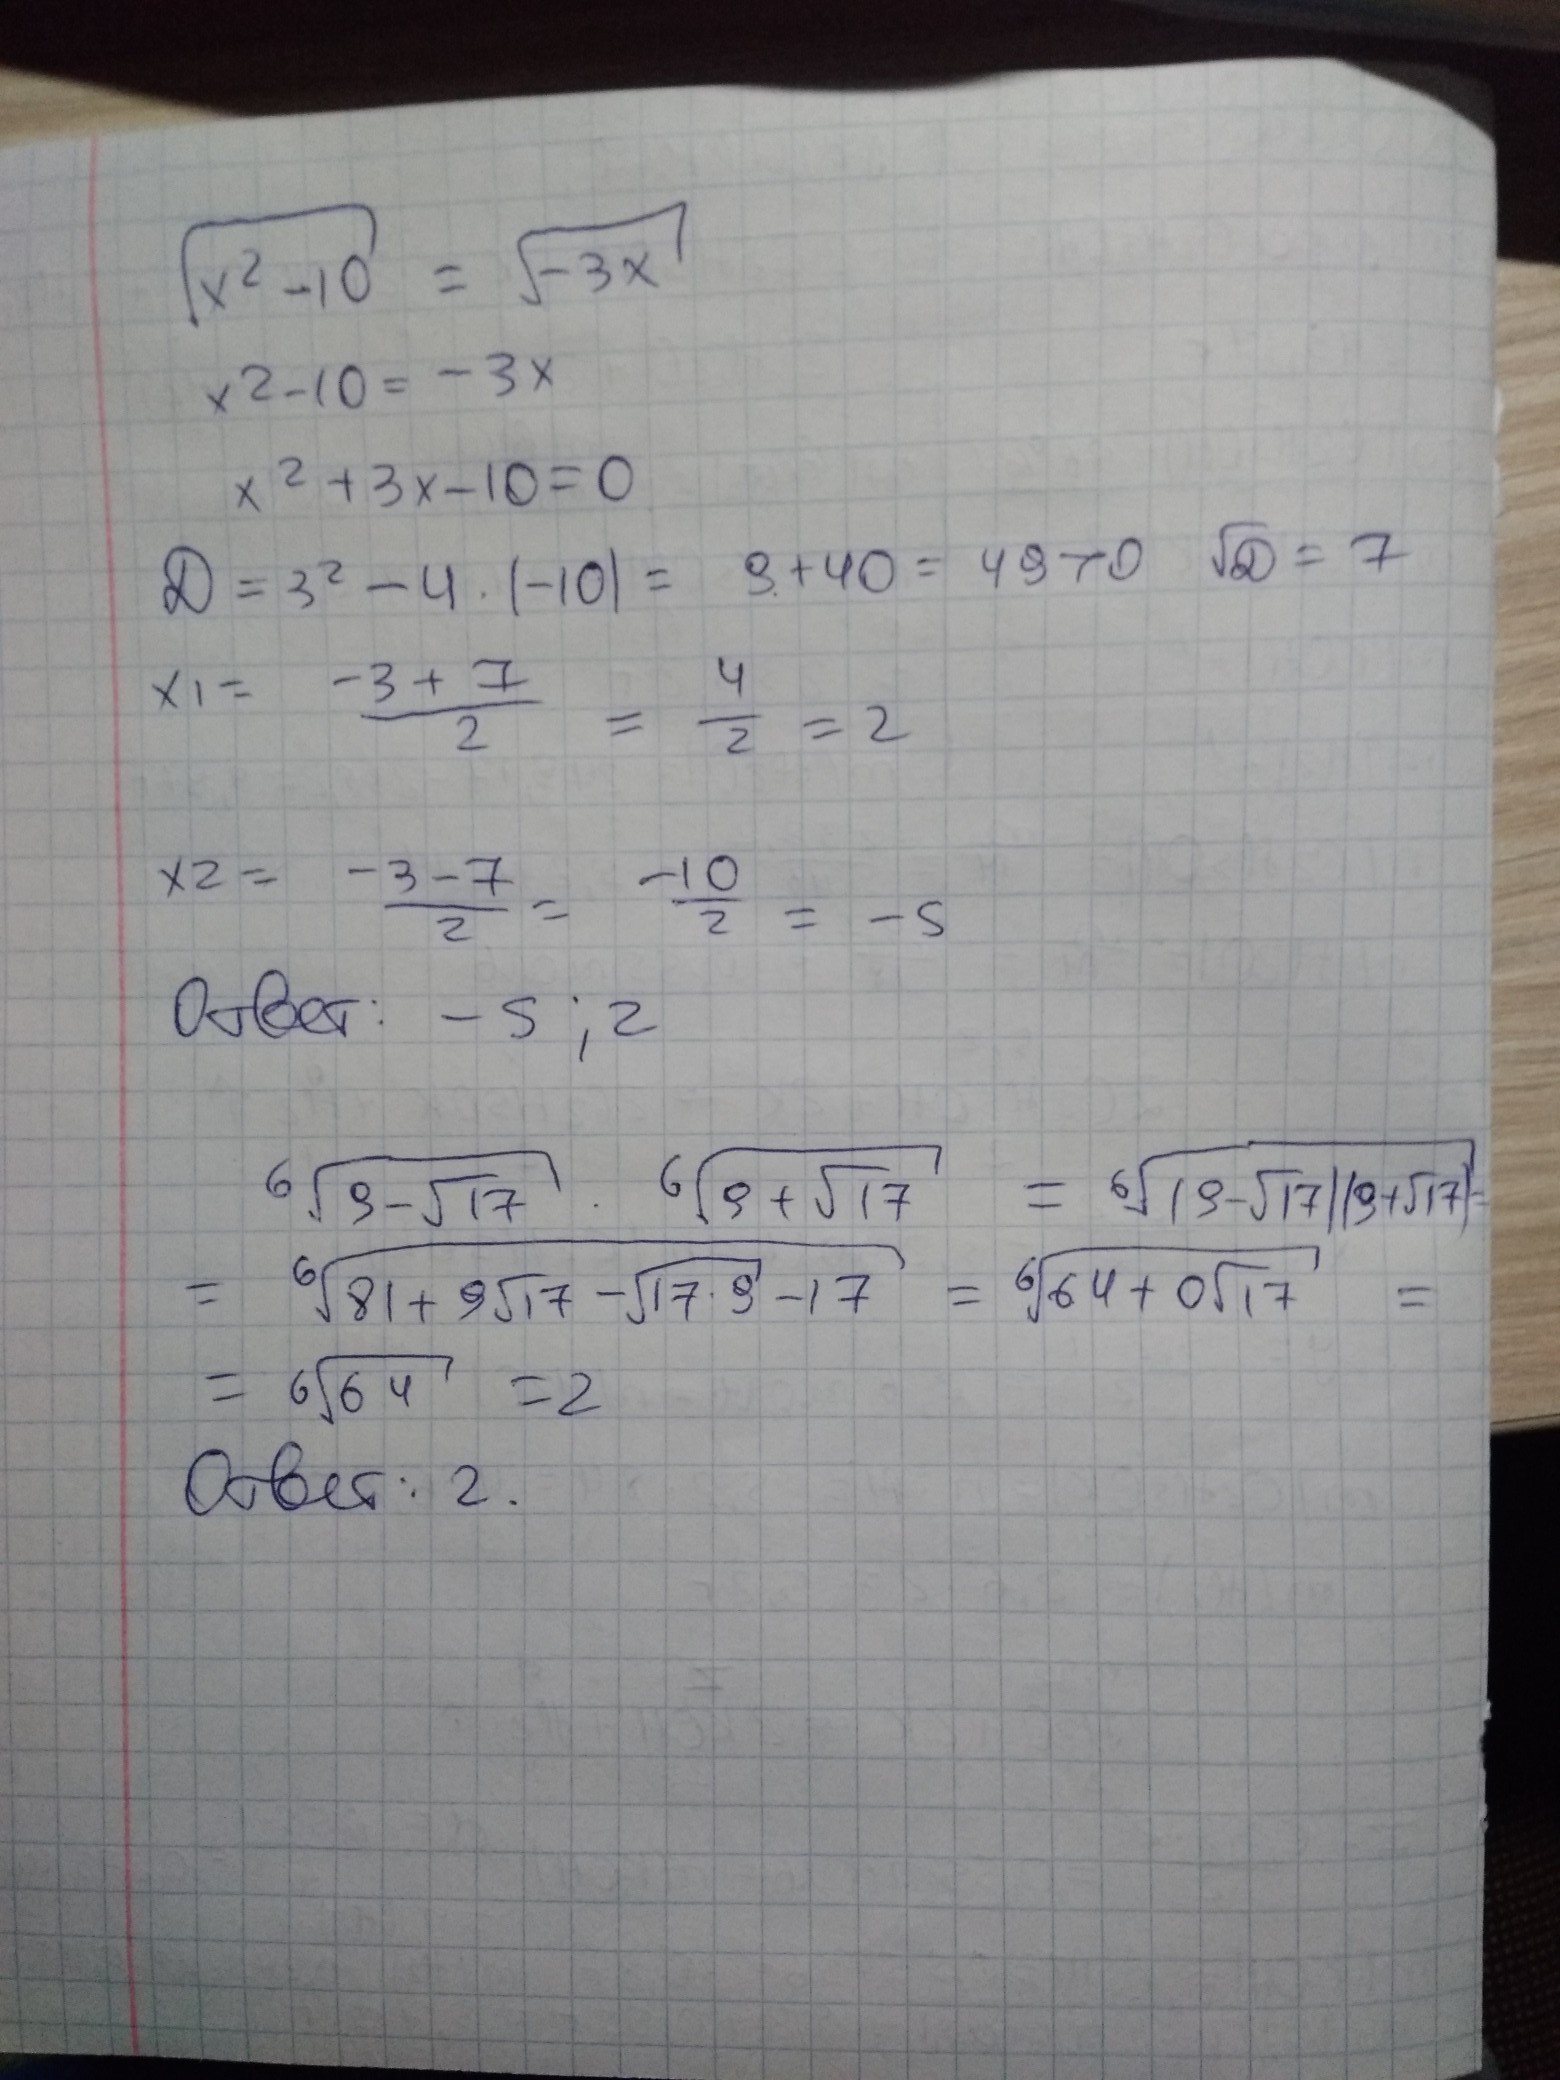 √(x² -10) = √(-3x)
x²-10 = -3x
x² +3x-10=0
D = 3² - 4 · (-10) = 9+40 = 49>0 √D = 7
x1 = (-3+7)/2 = 4/2 = 2
x2 = (-3-7)/2 = -10/2 = -5
Ответ: -5 ; 2
⁶√(9-√17) · ⁶√(9+√17) = ⁶√((9-√17)(9+√17)) =
= ⁶√(81+9√17 -√17·9 -17) = ⁶√(64+0√17) =
= ⁶√64 =2
Ответ: 2.